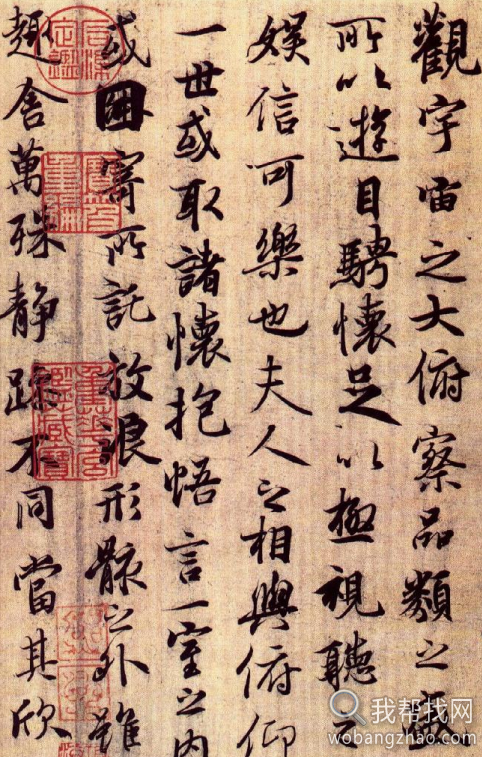 觀宇宙之大俯察品類之盛
所以遊目騁懷足以極視聽之
娛信可樂也夫人之相與俯仰
一世或取諸懷抱悟言一室之內
或因寄所託放浪形骸之外雖
趣舍萬殊静躁不同當其欣
石渠定鑑
寶笈重編
我帮找网
wobangzhao.com